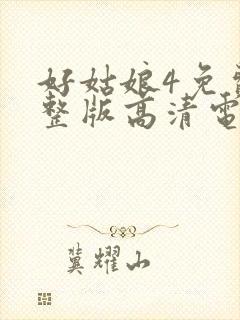 好姑娘4免费
整版高清电
冀耀山